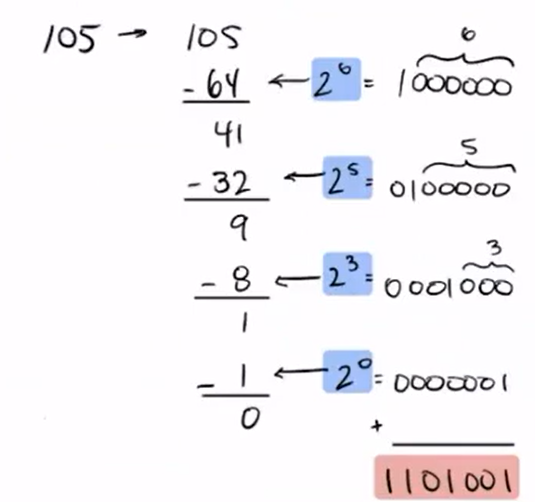 6
105 → 105
- 64 ← 2⁶ = 1000000
41
5
- 32 ← 2⁵ = 0100000
9
3
- 8 ← 2³ = 0001000
1
- 1 ← 2⁰ = 0000001
0
+
1101001